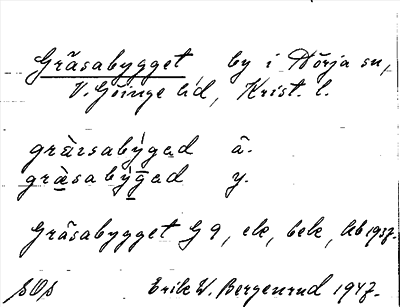 Gråsabygget, by i Nörja sn,
V. Göinge hd, Krist. l.
gràrsabỳgad â.
gràsabỳgad y.
Gråsabygget G 9, ek, bek, Ab 1937.
SOS Erik W. Bergenrud 1947.